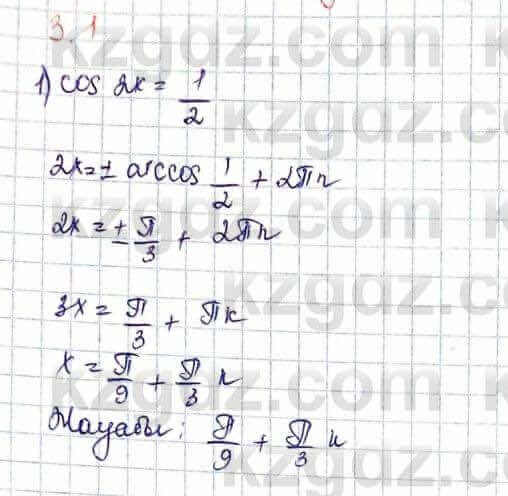 3.1
1) cos 2x = 1/2
2x = ± arccos 1/2 + 2πn
2x = ± π/3 + 2πn
3x = π/3 + πk
x = π/9 + π/3 n
Жауабы: π/9 + π/3 n
kzgdz.com